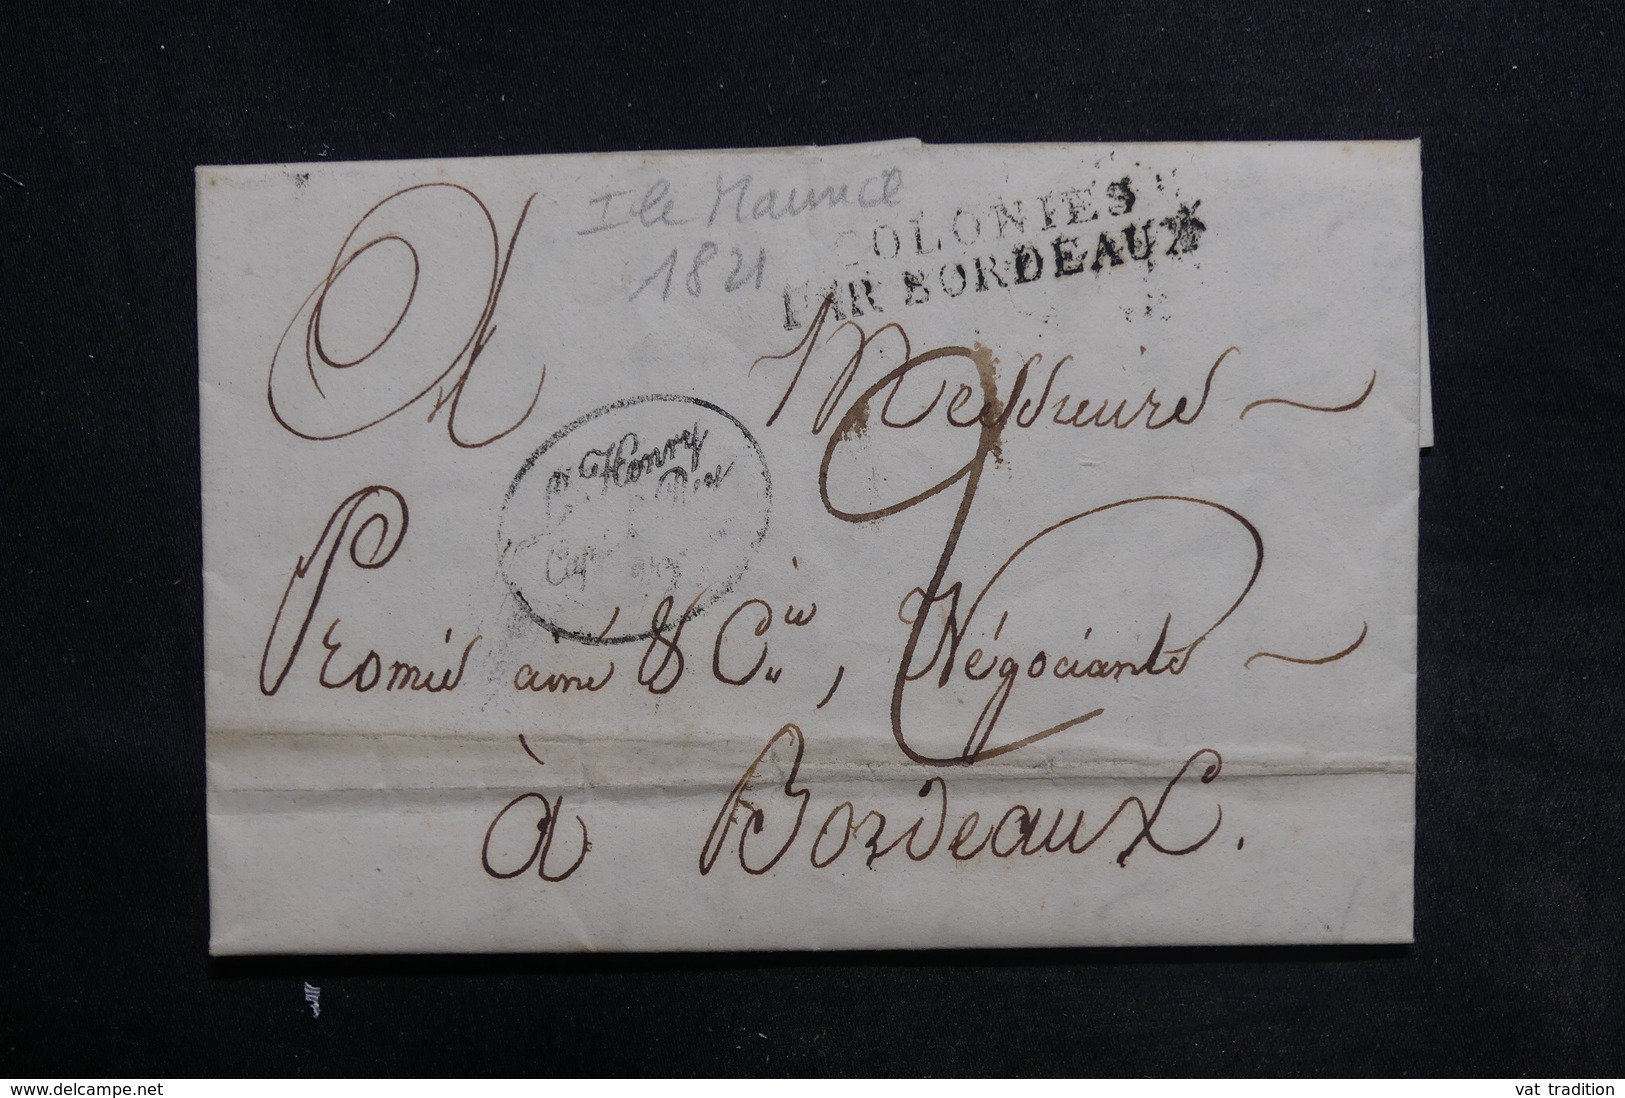 Ile Maurice
1821
COLONIES
PAR BORDEAUX
A Messieurs
Henry
Cap
Promis ainé & Cie, Négociants
à Bordeaux.
www.delcampe.net
vat_tradition